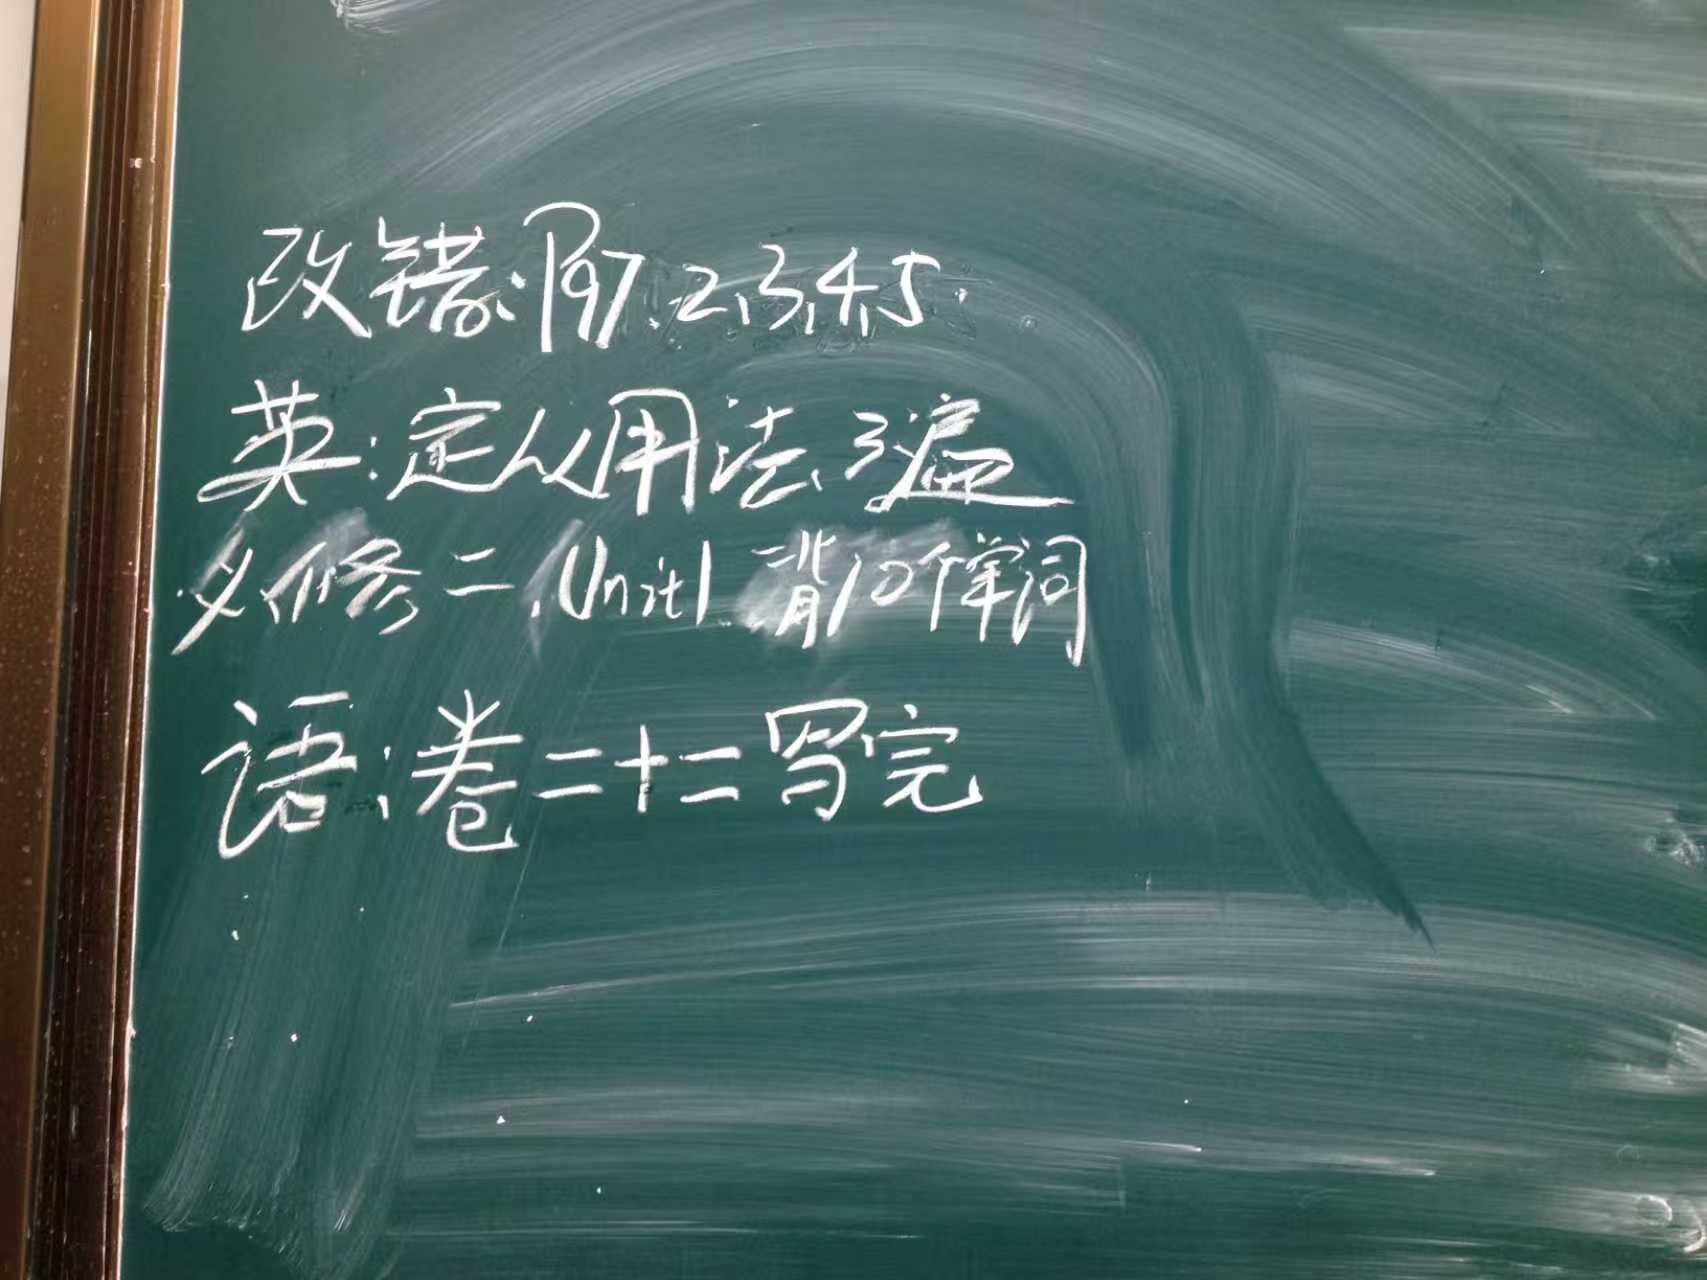 改错:P97.2,3,4,5.
英:定从用法、3遍
必修二、Unit1.背10个单词
语:卷二十二写完